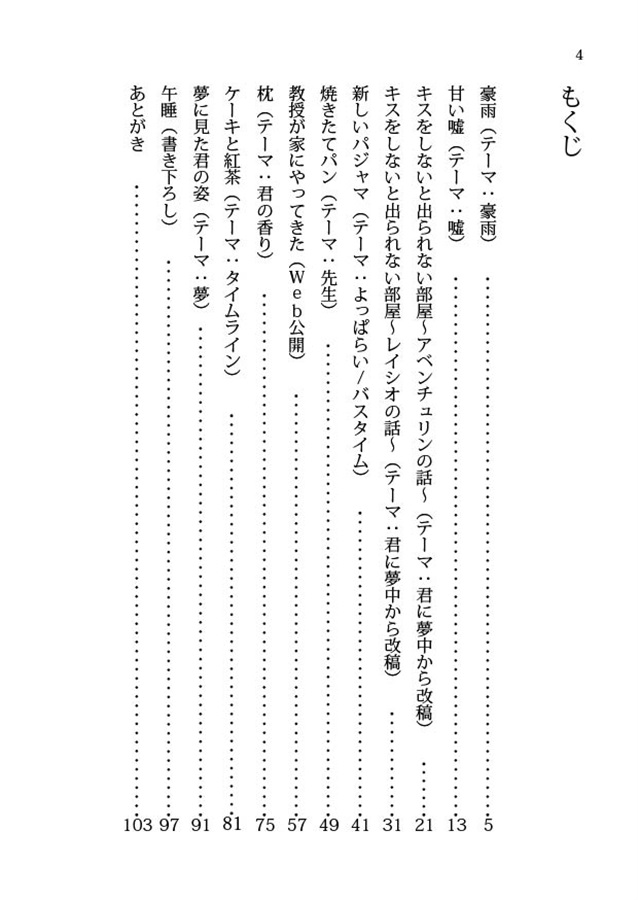 4
もくじ
豪雨（テーマ：豪雨）・・・・・・・・・・・・・・・・・・・・ 5
甘い嘘（テーマ：嘘）・・・・・・・・・・・・・・・・・・・・ 13
キスをしないと出られない部屋～アベンチュリンの話～（テーマ：君に夢中から改稿）・・・・ 21
キスをしないと出られない部屋～レイシオの話～（テーマ：君に夢中から改稿）・・・・・・・ 31
新しいパジャマ（テーマ：よっぱらい/バスタイム）・・・・・・・・・・・・・・・・ 41
焼きたてパン（テーマ：先生）・・・・・・・・・・・・・・・・・・・・ 49
教授が家にやってきた（Web公開）・・・・・・・・・・・・・・・・・・・・ 57
枕（テーマ：君の香り）・・・・・・・・・・・・・・・・・・・・ 75
ケーキと紅茶（テーマ：タイムライン）・・・・・・・・・・・・・・・・・・・・ 81
夢に見た君の姿（テーマ：夢）・・・・・・・・・・・・・・・・・・・・ 91
午睡（書き下ろし）・・・・・・・・・・・・・・・・・・・・ 97
あとがき・・・・・・・・・・・・・・・・・・・・ 103